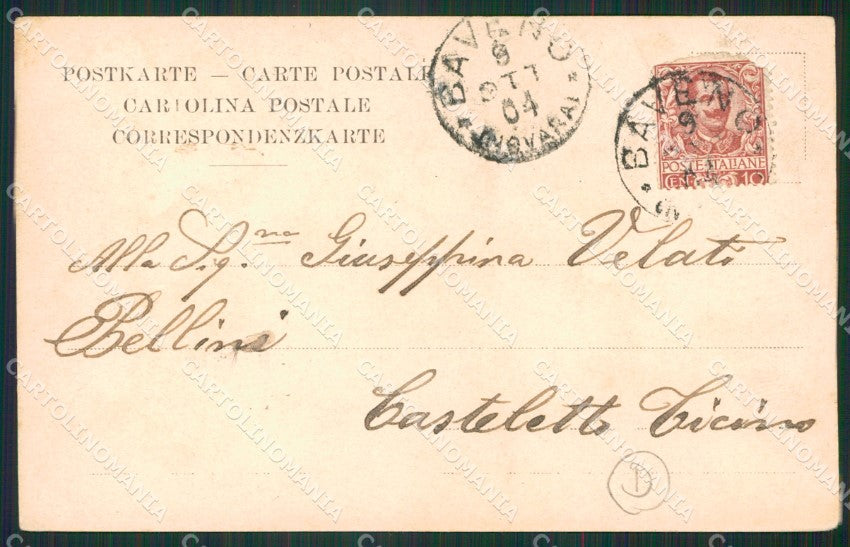 POSTKARTE — CARTE POSTALE
CARTOLINA POSTALE
CORRESPONDENZKARTE
BAVENO
9
OTT
04
(NOVARA)
BAVENO
9
POSTE ITALIANE
CENT. 10
Alla Sig.na Giuseppina Velati
Bellini
Casteletto Ticino
CARTOLINOMANIA